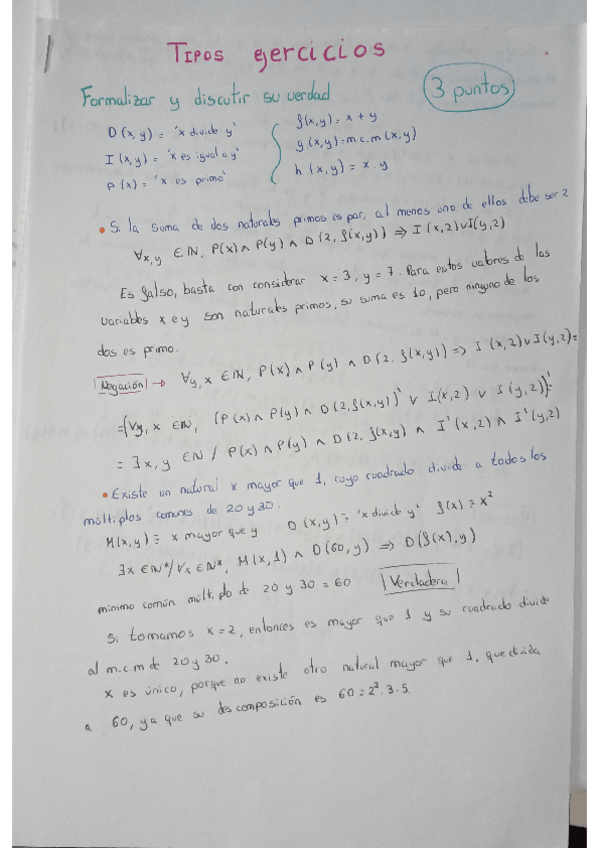 TIPOS ejercicios
Formalizar y discutir su verdad
3 puntos
D(x,y) = 'x divide y'
I(x,y) = 'x es igual a y'
P(x) = 'x es primo'
f(x,y) = x + y
g(x,y) = m.c.m(x,y)
h(x,y) = x·y
• Si la suma de dos naturales primos es par, al menos uno de ellos debe ser 2.
∀x,y ∈ IN, P(x) ∧ P(y) ∧ D(2, f(x,y)) => I(x,2) ∨ I(y,2)
Es falso, basta con considerar x = 3, y = 7. Para estos valores de las
variables x e y son naturales primos, su suma es 10, pero ninguno de los
dos es primo.
Negación → ∀y,x ∈ IN, P(x) ∧ P(y) ∧ D(2, f(x,y)) => I(x,2) ∨ I(y,2) =
=(∀y,x ∈ IN, (P(x) ∧ P(y) ∧ D(2, f(x,y))' ∨ I(x,2) ∨ I(y,2))' =
= ∃x,y ∈ IN / P(x) ∧ P(y) ∧ D(2, f(x,y) ∧ I'(x,2) ∧ I'(y,2)
• Existe un natural x mayor que 1, cuyo cuadrado divide a todos los
múltiplos comunes de 20 y 30.
M(x,y) ≡ x mayor que y D(x,y) ≡ 'x divide y' f(x) = x²
∃x ∈ IN*/ ∀x ∈ IN*, M(x,1) ∧ D(60,y) => D(f(x),y)
mínimo común múltiplo de 20 y 30 = 60 Verdadera
Si tomamos x = 2, entonces es mayor que 1 y su cuadrado divide
al m.c.m de 20 y 30.
x es único, porque no existe otro natural mayor que 1, que divida
a 60, ya que su descomposición es 60 = 2²·3·5.